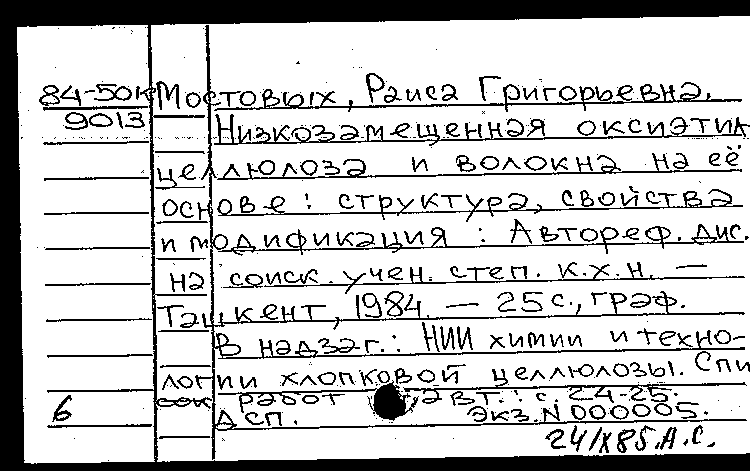 84-50к Мостовых, Раиса Григорьевна.
9013 Низкозамещенная оксиэтил
целлюлоза и волокна на её
основе: структура, свойства
и модификация: Автореф. дис.
на соиск. учен. степ. к.х.н. —
Ташкент, 1984. — 25 с., граф.
В надзаг.: НИИ химии и техно-
логии хлопковой целлюлозы. Спи
сок работ авт.: с. 24-25.
6 ДСП. Экз. N 000005.
24/X85. А.С.